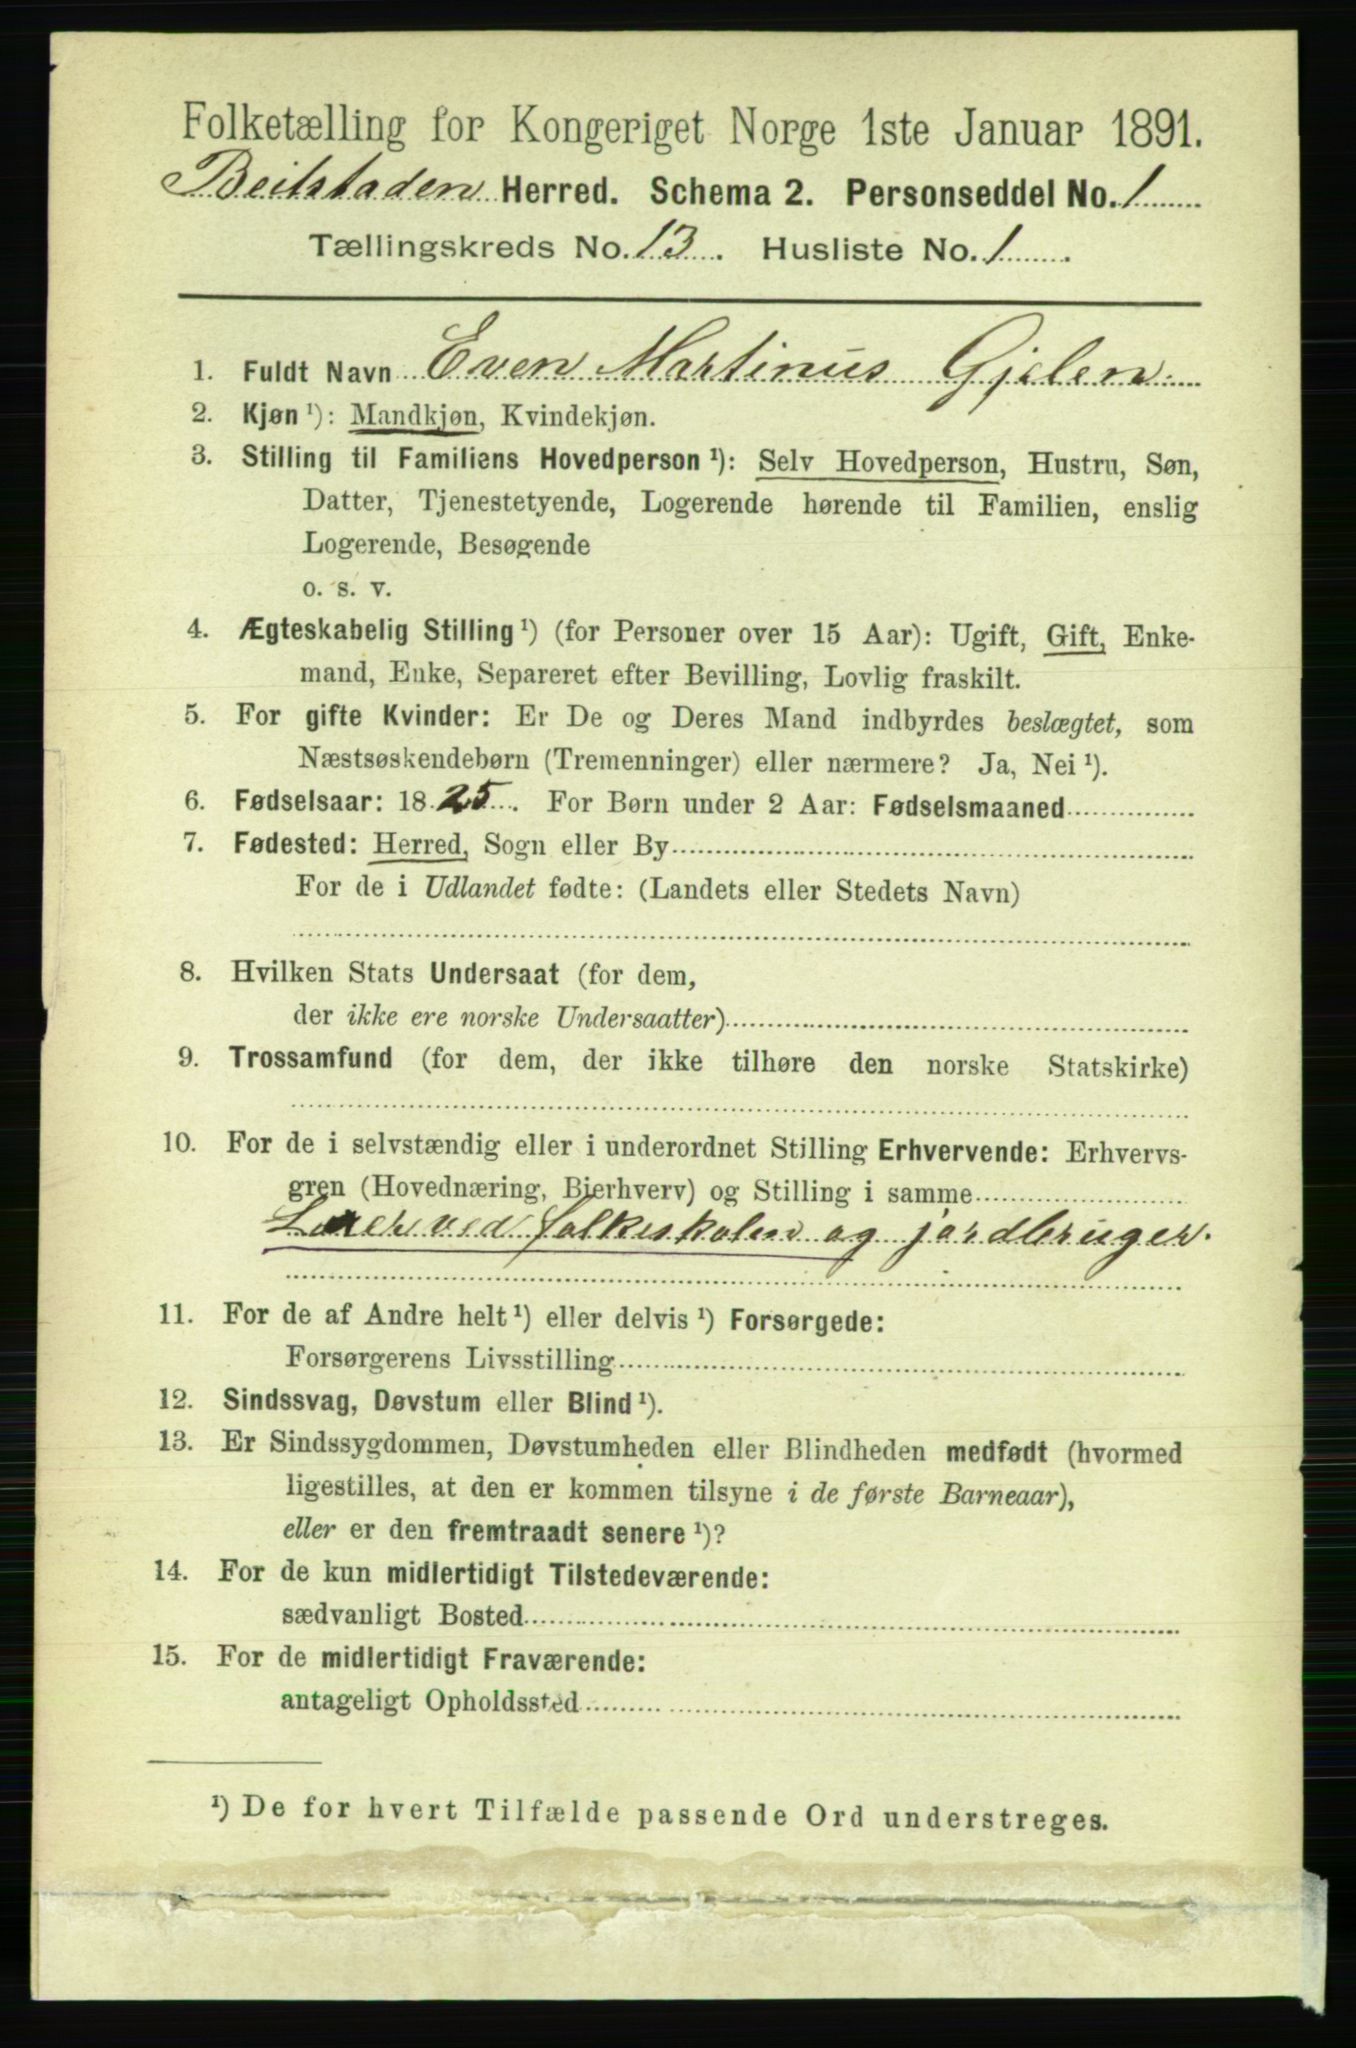 Folketælling for Kongeriget Norge 1ste Januar 1891.
Beitstaden Herred. Schema 2. Personseddel No. 1
Tællingskreds No. 13. Husliste No. 1.
1. Fuldt Navn Even Martinus Gjelen.
2. Kjøn ¹): Mandkjøn, Kvindekjøn.
3. Stilling til Familiens Hovedperson ¹): Selv Hovedperson, Hustru, Søn,
Datter, Tjenestetyende, Logerende hørende til Familien, enslig
Logerende, Besøgende
o. s. v.
4. Ægteskabelig Stilling ¹) (for Personer over 15 Aar): Ugift, Gift, Enke-
mand, Enke, Separeret efter Bevilling, Lovlig fraskilt.
5. For gifte Kvinder: Er De og Deres Mand indbyrdes beslægtet, som
Næstsøskendebørn (Tremenninger) eller nærmere? Ja, Nei ¹).
6. Fødselsaar: 1825. For Børn under 2 Aar: Fødselsmaaned
7. Fødested: Herred, Sogn eller By
For de i Udlandet fødte: (Landets eller Stedets Navn)
8. Hvilken Stats Undersaat (for dem,
der ikke ere norske Undersaatter)
9. Trossamfund (for dem, der ikke tilhøre den norske Statskirke)
10. For de i selvstændig eller i underordnet Stilling Erhvervende: Erhvervs-
gren (Hovednæring, Bierhverv) og Stilling i samme
Lærer ved folkeskolen og jordbruger.
11. For de af Andre helt ¹) eller delvis ¹) Forsørgede:
Forsørgerens Livsstilling
12. Sindssvag, Døvstum eller Blind ¹).
13. Er Sindssygdommen, Døvstumheden eller Blindheden medfødt (hvormed
ligestilles, at den er kommen tilsyne i de første Barneaar),
eller er den fremtraadt senere ¹)?
14. For de kun midlertidigt Tilstedeværende:
sædvanligt Bosted
15. For de midlertidigt Fraværende:
antageligt Opholdssted
¹) De for hvert Tilfælde passende Ord understreges.